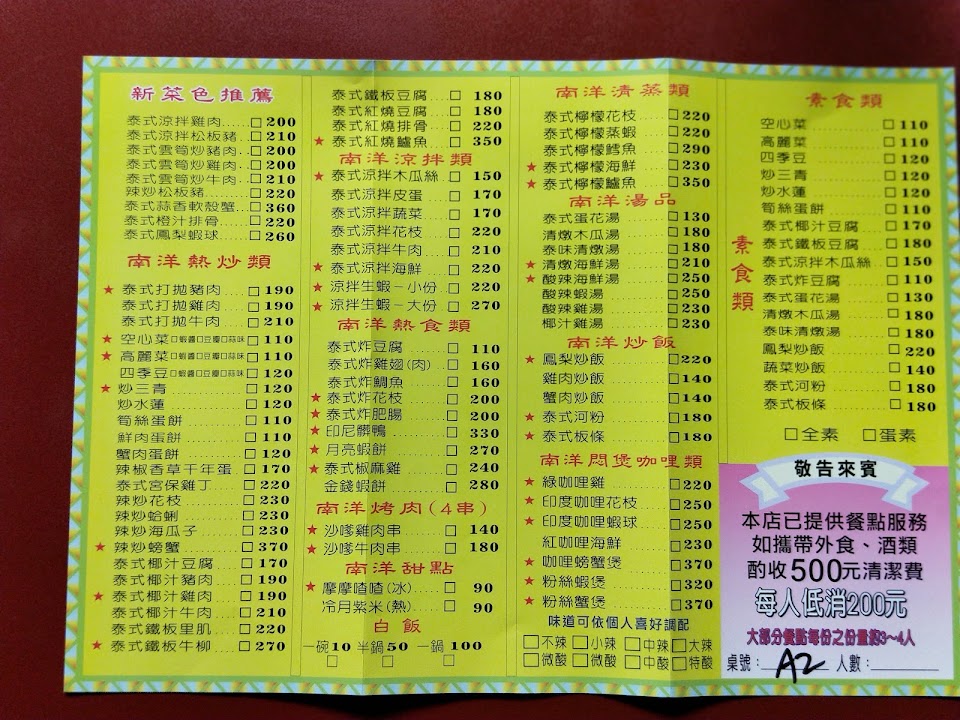 新菜色推薦
泰式涼拌雞肉....□200
泰式涼拌松板豬...□210
泰式雲筍炒豬肉...□200
泰式雲筍炒雞肉...□200
泰式雲筍炒牛肉...□210
辣炒松板豬......□220
泰式蒜香軟殼蟹...□360
泰式橙汁排骨....□220
泰式鳳梨蝦球....□260
南洋熱炒類
★泰式打拋豬肉...□190
泰式打拋雞肉....□190
泰式打拋牛肉....□210
★空心菜□蝦醬□豆瓣□蒜味□110
★高麗菜□蝦醬□豆瓣□蒜味□110
四季豆□蝦醬□豆瓣□蒜味□120
★炒三青........□120
炒水蓮.........□120
筍絲蛋餅.......□110
鮮肉蛋餅.......□110
蟹肉蛋餅.......□120
辣椒香草千年蛋..□170
泰式宮保雞丁....□220
辣炒花枝.......□230
辣炒蛤蜊.......□230
辣炒海瓜子.....□230
★辣炒螃蟹......□370
泰式椰汁豆腐....□170
泰式椰汁豬肉....□190
★泰式椰汁雞肉...□190
泰式椰汁牛肉....□210
泰式鐵板里肌....□220
★泰式鐵板牛柳...□270
泰式鐵板豆腐...□180
泰式紅燒豆腐...□180
泰式紅燒排骨...□220
★泰式紅燒鱸魚..□350
南洋涼拌類
★泰式涼拌木瓜絲.□150
泰式涼拌皮蛋...□170
泰式涼拌蔬菜...□170
泰式涼拌花枝...□220
泰式涼拌牛肉...□210
★泰式涼拌海鮮..□220
★涼拌生蝦～小份.□220
★涼拌生蝦～大份.□270
南洋熱食類
泰式炸豆腐.....□110
泰式炸雞翅(肉)..□160
泰式炸鯛魚.....□160
★泰式炸花枝....□200
★泰式炸肥腸....□200
★印尼髒鴨......□330
★月亮蝦餅......□270
★泰式椒麻雞....□240
金錢蝦餅.......□280
南洋烤肉(4串)
★沙嗲雞肉串....□140
★沙嗲牛肉串....□180
南洋甜點
★摩摩喳喳(冰)..□90
冷月紫米(熱)...□90
白飯
一碗10 半鍋50 一鍋100
□ □ □
南洋清蒸類
泰式檸檬花枝...□220
泰式檸檬蒸蝦...□220
泰式檸檬鱈魚...□290
★泰式檸檬海鮮..□230
★泰式檸檬鱸魚..□350
南洋湯品
泰式蛋花湯.....□130
清燉木瓜湯.....□180
泰味清燉湯.....□180
★清燉海鮮湯....□210
★酸辣海鮮湯....□250
酸辣蝦湯.......□250
酸辣雞湯.......□230
椰汁雞湯.......□230
南洋炒飯
★鳳梨炒飯......□220
雞肉炒飯.......□140
蟹肉炒飯.......□140
★泰式河粉......□180
★泰式板條......□180
南洋悶煲咖哩類
★綠咖哩雞......□220
★印度咖哩花枝..□250
★印度咖哩蝦球..□250
紅咖哩海鮮.....□230
★咖哩螃蟹煲....□370
★粉絲蝦煲......□320
★粉絲蟹煲......□370
味道可依個人喜好調配
□不辣 □小辣 □中辣 □大辣
□微酸 □微酸 □中酸 □特酸
素食類
素食類
空心菜........□110
高麗菜........□110
四季豆........□120
炒三青........□120
炒水蓮........□120
筍絲蛋餅......□110
泰式椰汁豆腐...□170
泰式鐵板豆腐...□180
泰式涼拌木瓜絲.□150
泰式炸豆腐.....□110
泰式蛋花湯.....□130
清燉木瓜湯.....□180
泰味清燉湯.....□180
鳳梨炒飯......□220
蔬菜炒飯......□140
泰式河粉......□180
泰式板條......□180
□全素 □蛋素
敬告來賓
本店已提供餐點服務
如攜帶外食、酒類
酌收500元清潔費
每人低消200元
大部分餐點每份之份量約3～4人
桌號：A2 人數：